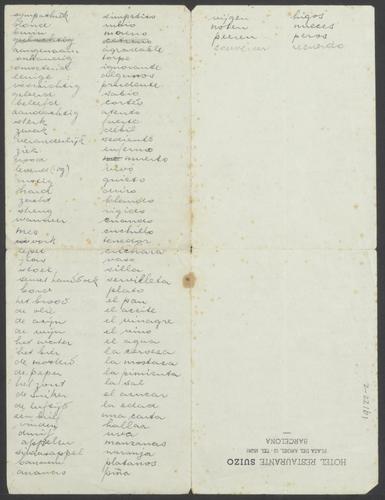 sympathiek simpatico
bruin moreno
aangenaam agradable
torpe
onwetend ignorante
eenige algunos
voorzichtig prudente
geleerd sabio
beleefd cortés
aandachtig atento
sterk fuerte
zwak débil
veranderlijk
ziek enfermo
dood muerto
levend vivo
rustig quieto
hard duro
zacht blando
streng rigido
wanneer cuando
mes cuchillo
vork tenedor
lepel cuchara
glas vaso
stoel silla
servet servilleta
bord plato
het brood el pan
de olie el aceite
de azijn el vinagre
de wijn el vino
het water el agua
het bier la cerveza
de mosterd la mostaza
de peper la pimienta
het zout la sal
de suiker el azucar
de leeftijd la edad
een brief una carta
vinden hallar
druif uva
appelen manzanas
sinaasappel naranja
bananen platanos
ananas piña
vijgen higos
noten nueces
peeren peras
souvenir recuerdo
2-22(6)
HOTEL RESTAURANTE SUIZO
PLAZA DEL ANGEL, 12
BARCELONA